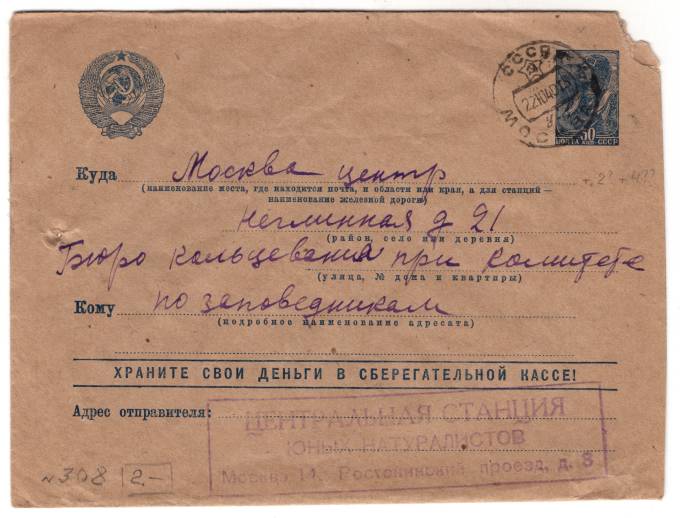 СССР
МОСКВА
60
ПОЧТА СССР
Куда Москва центр
(наименование места, где находится почта, и области или края, а для станций —
наименование железной дороги)
Неглинная д 21
(район, село или деревня)
Бюро кольцевания при комитете
(улица, № дома и квартиры)
Кому по заповедникам
(подробное наименование адресата)
ХРАНИТЕ СВОИ ДЕНЬГИ В СБЕРЕГАТЕЛЬНОЙ КАССЕ!
Адрес отправителя:
ЦЕНТРАЛЬНАЯ СТАНЦИЯ
ЮНЫХ НАТУРАЛИСТОВ
Москва 14, Ростокинский проезд, д. 3
№308 2.-